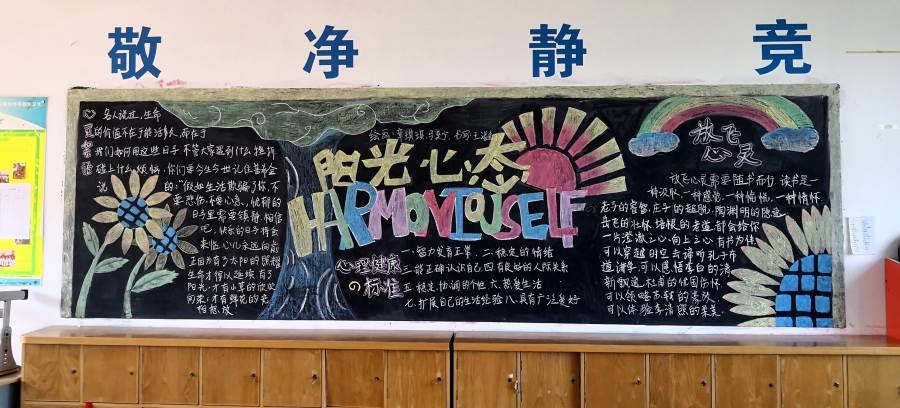 敬 净 静 竞
名人说过,生命
的价值不在于能活多久,而在于
我们如何用这些日子 不管大家遇到什么挫折
碰上什么烦恼,你们要今生今世记住普希金
说的:"假如生活欺骗了你,不
要悲伤,不要心急,忧郁的
日子里需要镇静,相信
吧,快乐的日子将会
来临,心儿永远向前
正因为有了太阳的照耀
生命才得以延续 有了
阳光,才有山草的欣欣
向荣,才有鲜花的竞
相怒放
阳光心态
HARMONIOUSELF
心理健康
の标准
一.智力发育正常 二.稳定的情绪
三.能正确认识自己 四.有良好的人际关系
五.稳定、协调的个性 六.热爱生活
七.扩展自己的生活经验 八.具有广泛爱好
放飞
心灵
放飞心灵需要随书而行,读书是一
种汲取,一种感觉,一种愉悦,一种情怀
老子的睿智,庄子的超脱,陶渊明的隐逸
岳飞的壮怀,培根的老道,都会给你
一片澄澈之心,向上之心 有书为伴
可以穿越时空去谛听孔子布
道讲学,可以感悟李白的清
新飘逸,杜甫的忧国伤怀
可以领略苏轼的豪放
可以体验李清照的柔美